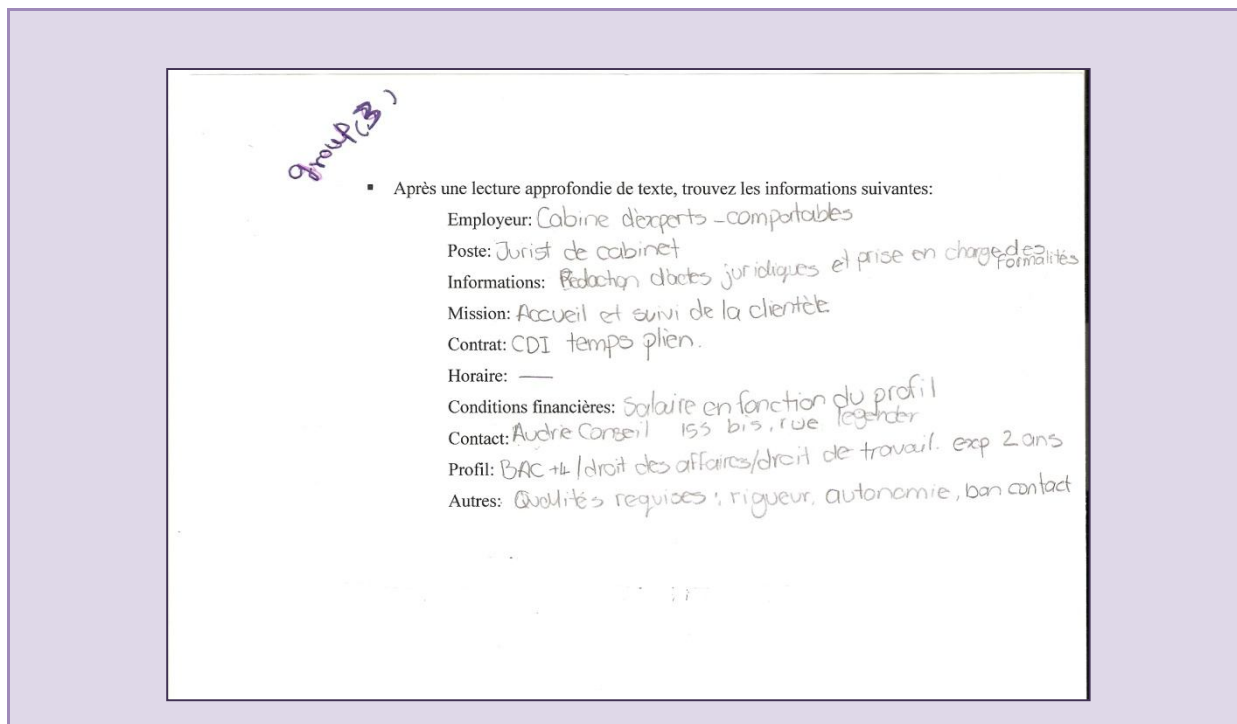 group(3)
▪ Après une lecture approfondie de texte, trouvez les informations suivantes:
Employeur: Cabine d'experts-comportables
Poste: Jurist de cabinet
Informations: Rédaction d'actes juridiques et prise en charge des formalités
Mission: Accueil et suivi de la clientèle
Contrat: CDI temps plien.
Horaire: —
Conditions financières: Salaire en fonction du profil
Contact: Audrie Conseil 155 bis, rue legender
Profil: BAC +4 /droit des affaires/droit de travail. exp 2 ans
Autres: Quallités requises: rigueur, autonomie, bon contact